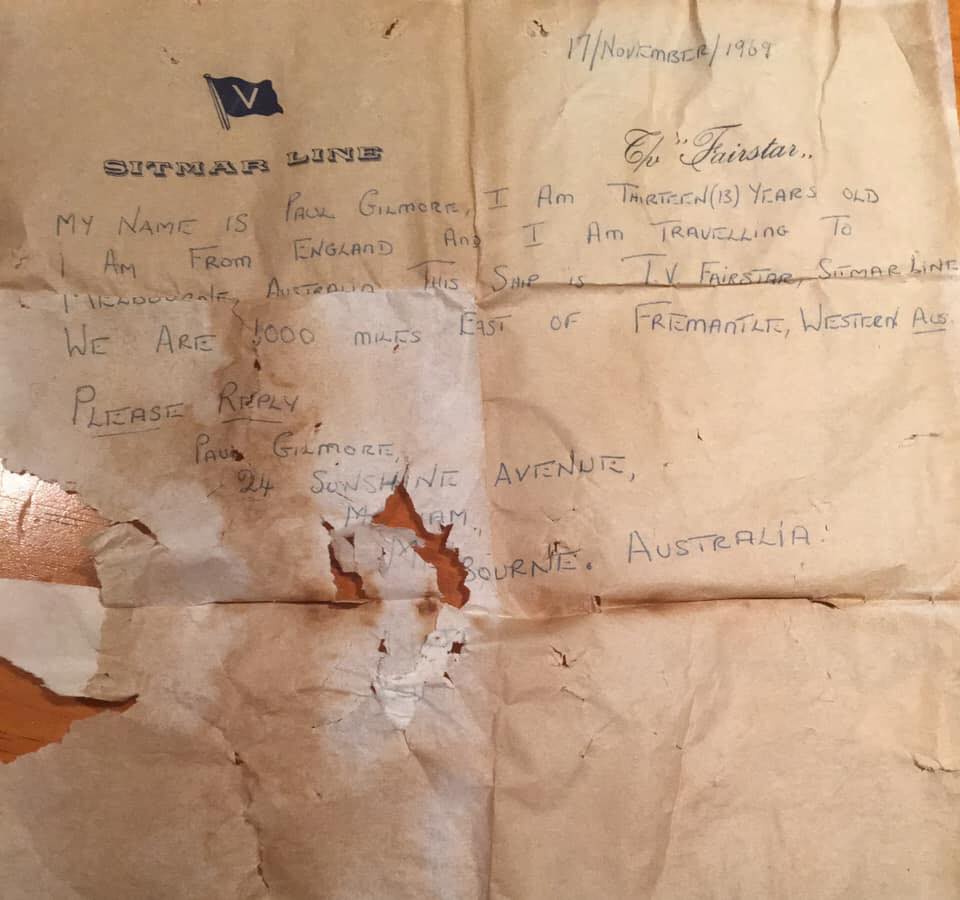 17/NOVEMBER/1969
V
SITMAR LINE
T/v "Fairstar„
MY NAME IS PAUL GILMORE, I AM THIRTEEN(13) YEARS OLD
I AM FROM ENGLAND AND I AM TRAVELLING TO
MELBOURNE, AUSTRALIA THIS SHIP IS T.V FAIRSTAR, SITMAR LINE
WE ARE 1000 MILES EAST OF FREMANTLE, WESTERN AUS.
PLEASE REPLY
PAUL GILMORE,
24 SUNSHINE AVENUE,
M AM,
M BOURNE. AUSTRALIA.